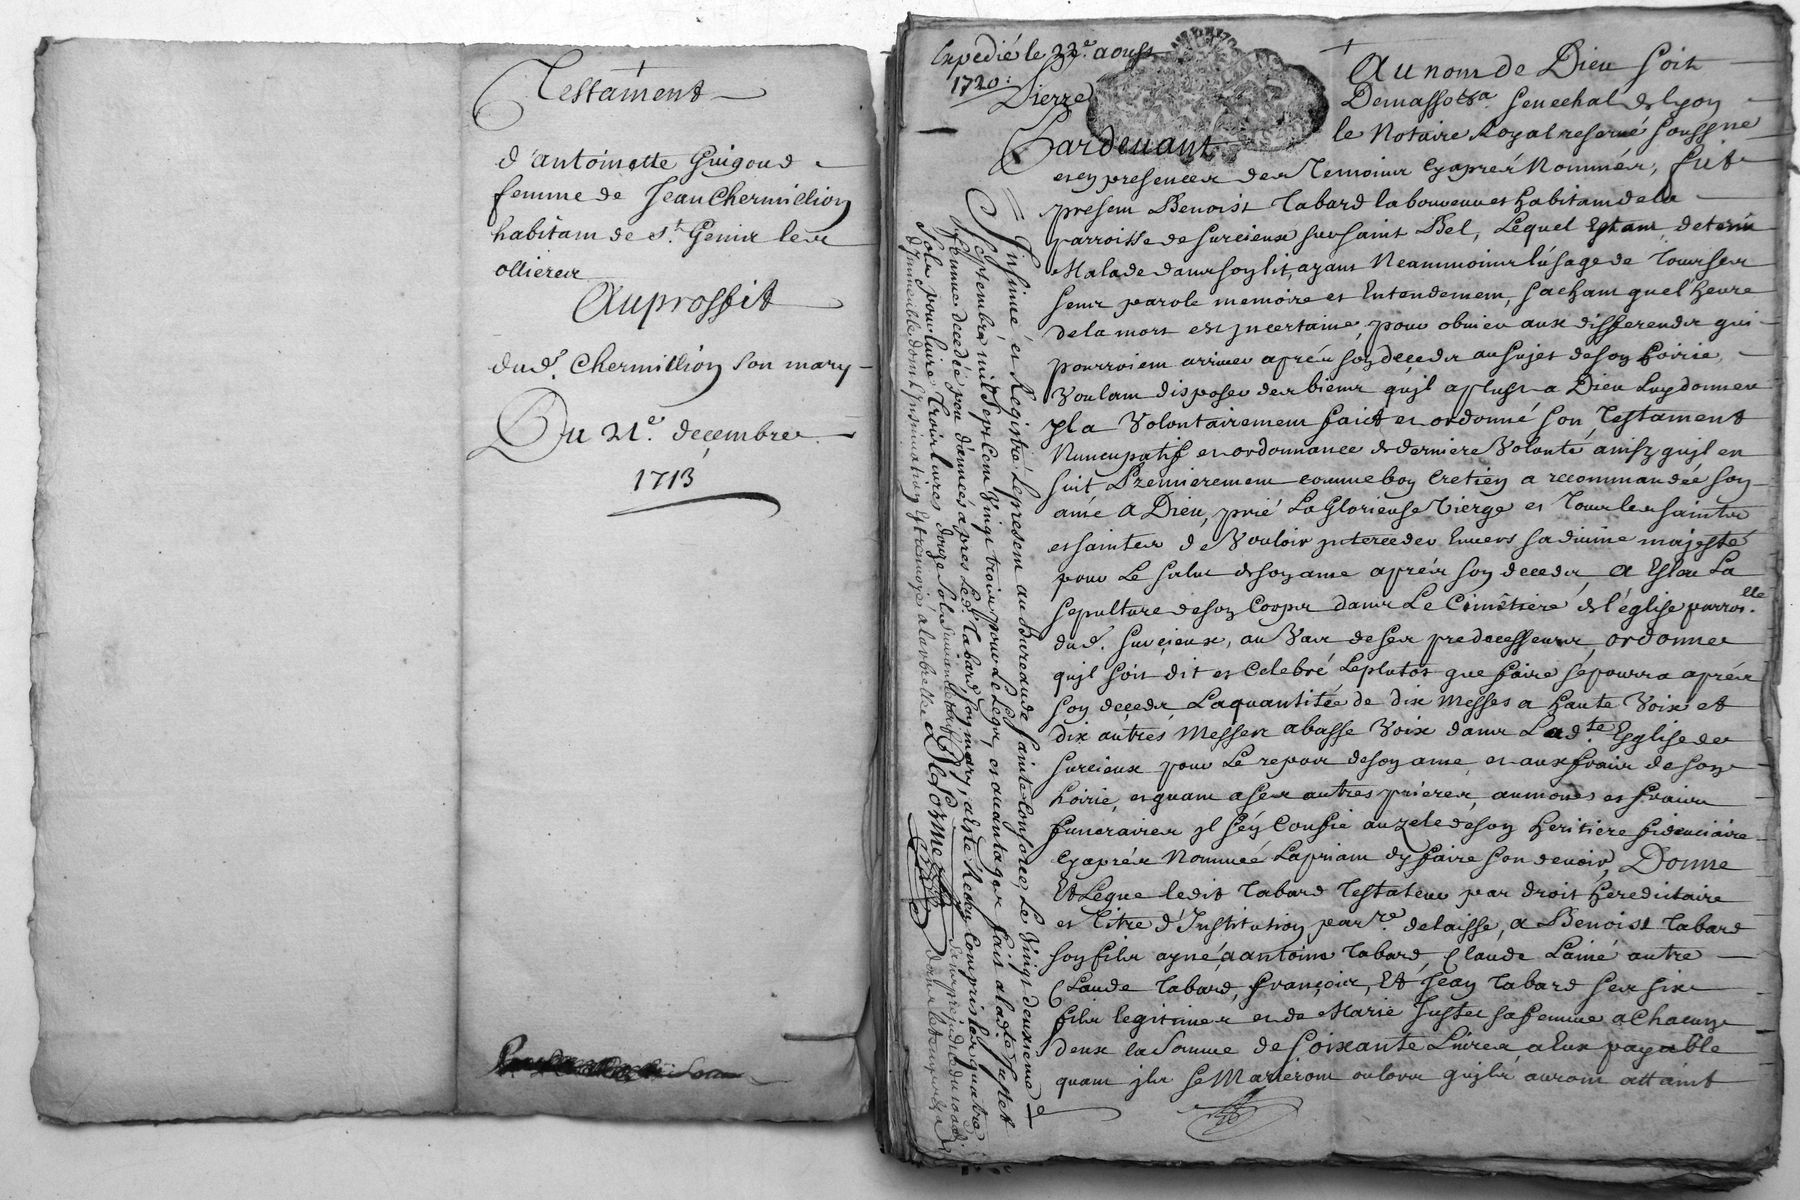 Testament
d'antoinette Guigoud
femme de Jean Chermillion
habitam de st. Genir lear
ollierer
Auproffit
dud. Chermillion son mary
Du 21e. decembre
1713
Expedié le 22e. aoust
1720:
Pierre
Au nom de Dieu soit
senechal de lyon
Pardevant
le Notaire Royal reservé soussigné
et en presencer der Temoinr cyaprér Nommér, fut
presem Benoist Tabard laboureur et habitam de la
parroisse de surcieux sur saint Bel, Lequel Estam detenu
Malade danr son lit, ayam Neammoinr l'usage de Tour ser
senr parole memoire et Entendemem, sacham que l'heure
de la mort est jncertaine, pour obvier aux differender qui
pourroiem arriver aprér son deceder au sujet de son hoirie,
Voulam disposer der bienr qu'jl a plust a Dieu Luy donner
jl a Volontairemem faict et ordonné son Testament
Nuncupatif et ordonnance de derniere Volonté ainsy qu'jl en
suit Premieremem comme bon Cretien a recommandée son
ame A Dieu, prié La Glorieuse Vierge et Tour ler saintr
et sainter de Vouloir jnterceder Envers sa divine majesté
pour Le salut de son ame aprér son deceder, a Esleu La
sepulture de son Coorpr danr Le Cimêtiere de l'églize parroislle.
dud. surcieux, au Var de ser predecesseurr, ordonner
qujl soit dit et Celebré Leplutot que faire se pourra aprér
son decedr Laquantitée de dix Messes a haute Voix et
dix autrés Messer abasse Voix danr Ladte. Esglise de
surcieux pour Le repor de son ame et aux frair de son
hoirie, et quam a ser autres priérer, aumoner et frair
funerairer jl s'én Confie au zele de son heritiere fideuciaire
cyaprér Nommée Lapriam d'y faire son devoir, Donne
Et Legue ledit Tabard Testateur par droit hereditaire
et Titre d'Institution parre. delaisse, a Benoist Tabard
son filr ayné, a antoine Tabard, Claude Lainé autre
Claude Tabard, françoir, Et Jean Tabard ser six
filr legitimer et de Marie Juttet sa femme a Chacun
deux la Somme de soixante Livrer, a Eux payable
quam jlr se Marierom oulorr qujlr aurom attaint
Insinué et Registré Lepresem au Bureau de sainte Consorce, Le Vingt deuxieme
septembre mil sept Cem Vingt troir pour Le Legr, et avantager fait a ladte Juttet
sa femme decedée peu d'année apres Led. Tabard son mary,
Delorme